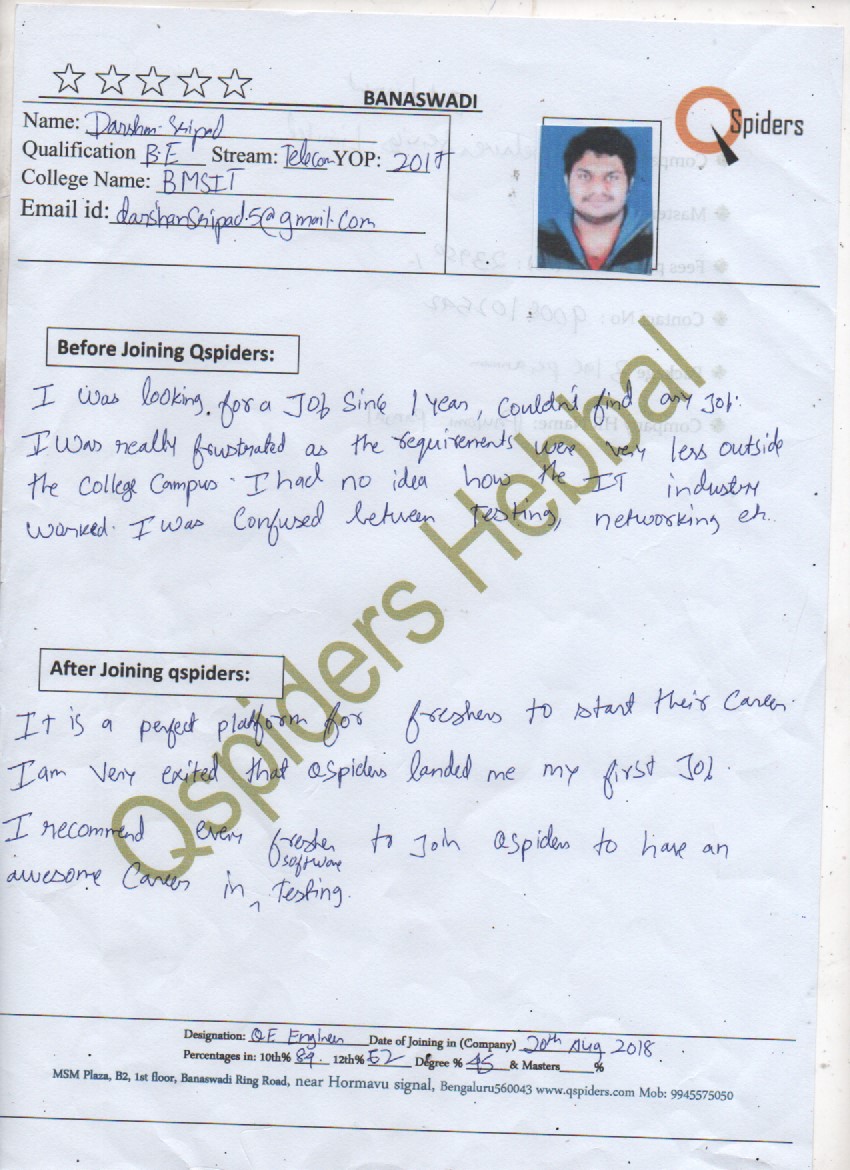 BANASWADI
QSpiders
Name: Darshan Sripad
Qualification B.E Stream: Telecom YOP: 2017
College Name: BMSIT
Email id: darshansripad.5@gmail.com
Before Joining Qspiders:
I was looking for a Job Since 1 year, Couldn't find any Job.
I was really frustrated as the requirements were very less outside
the College Campus. I had no idea how the IT industry
worked. I was Confused between Testing, networking etc.
Qspiders Hebbal
After Joining qspiders:
It is a perfect platform for freshers to start their Career.
I am very exited that QSpiders landed me my first Job.
I recommend every fresher to Join QSpiders to have an
software
awesome Career in ^ Testing.
Designation: QE Engineer Date of Joining in (Company) 20th Aug 2018
Percentages in: 10th% 89. 12th% 62 Degree % & Masters %
MSM Plaza, B2, 1st floor, Banaswadi Ring Road, near Hormavu signal, Bengaluru560043 www.qspiders.com Mob: 9945575050